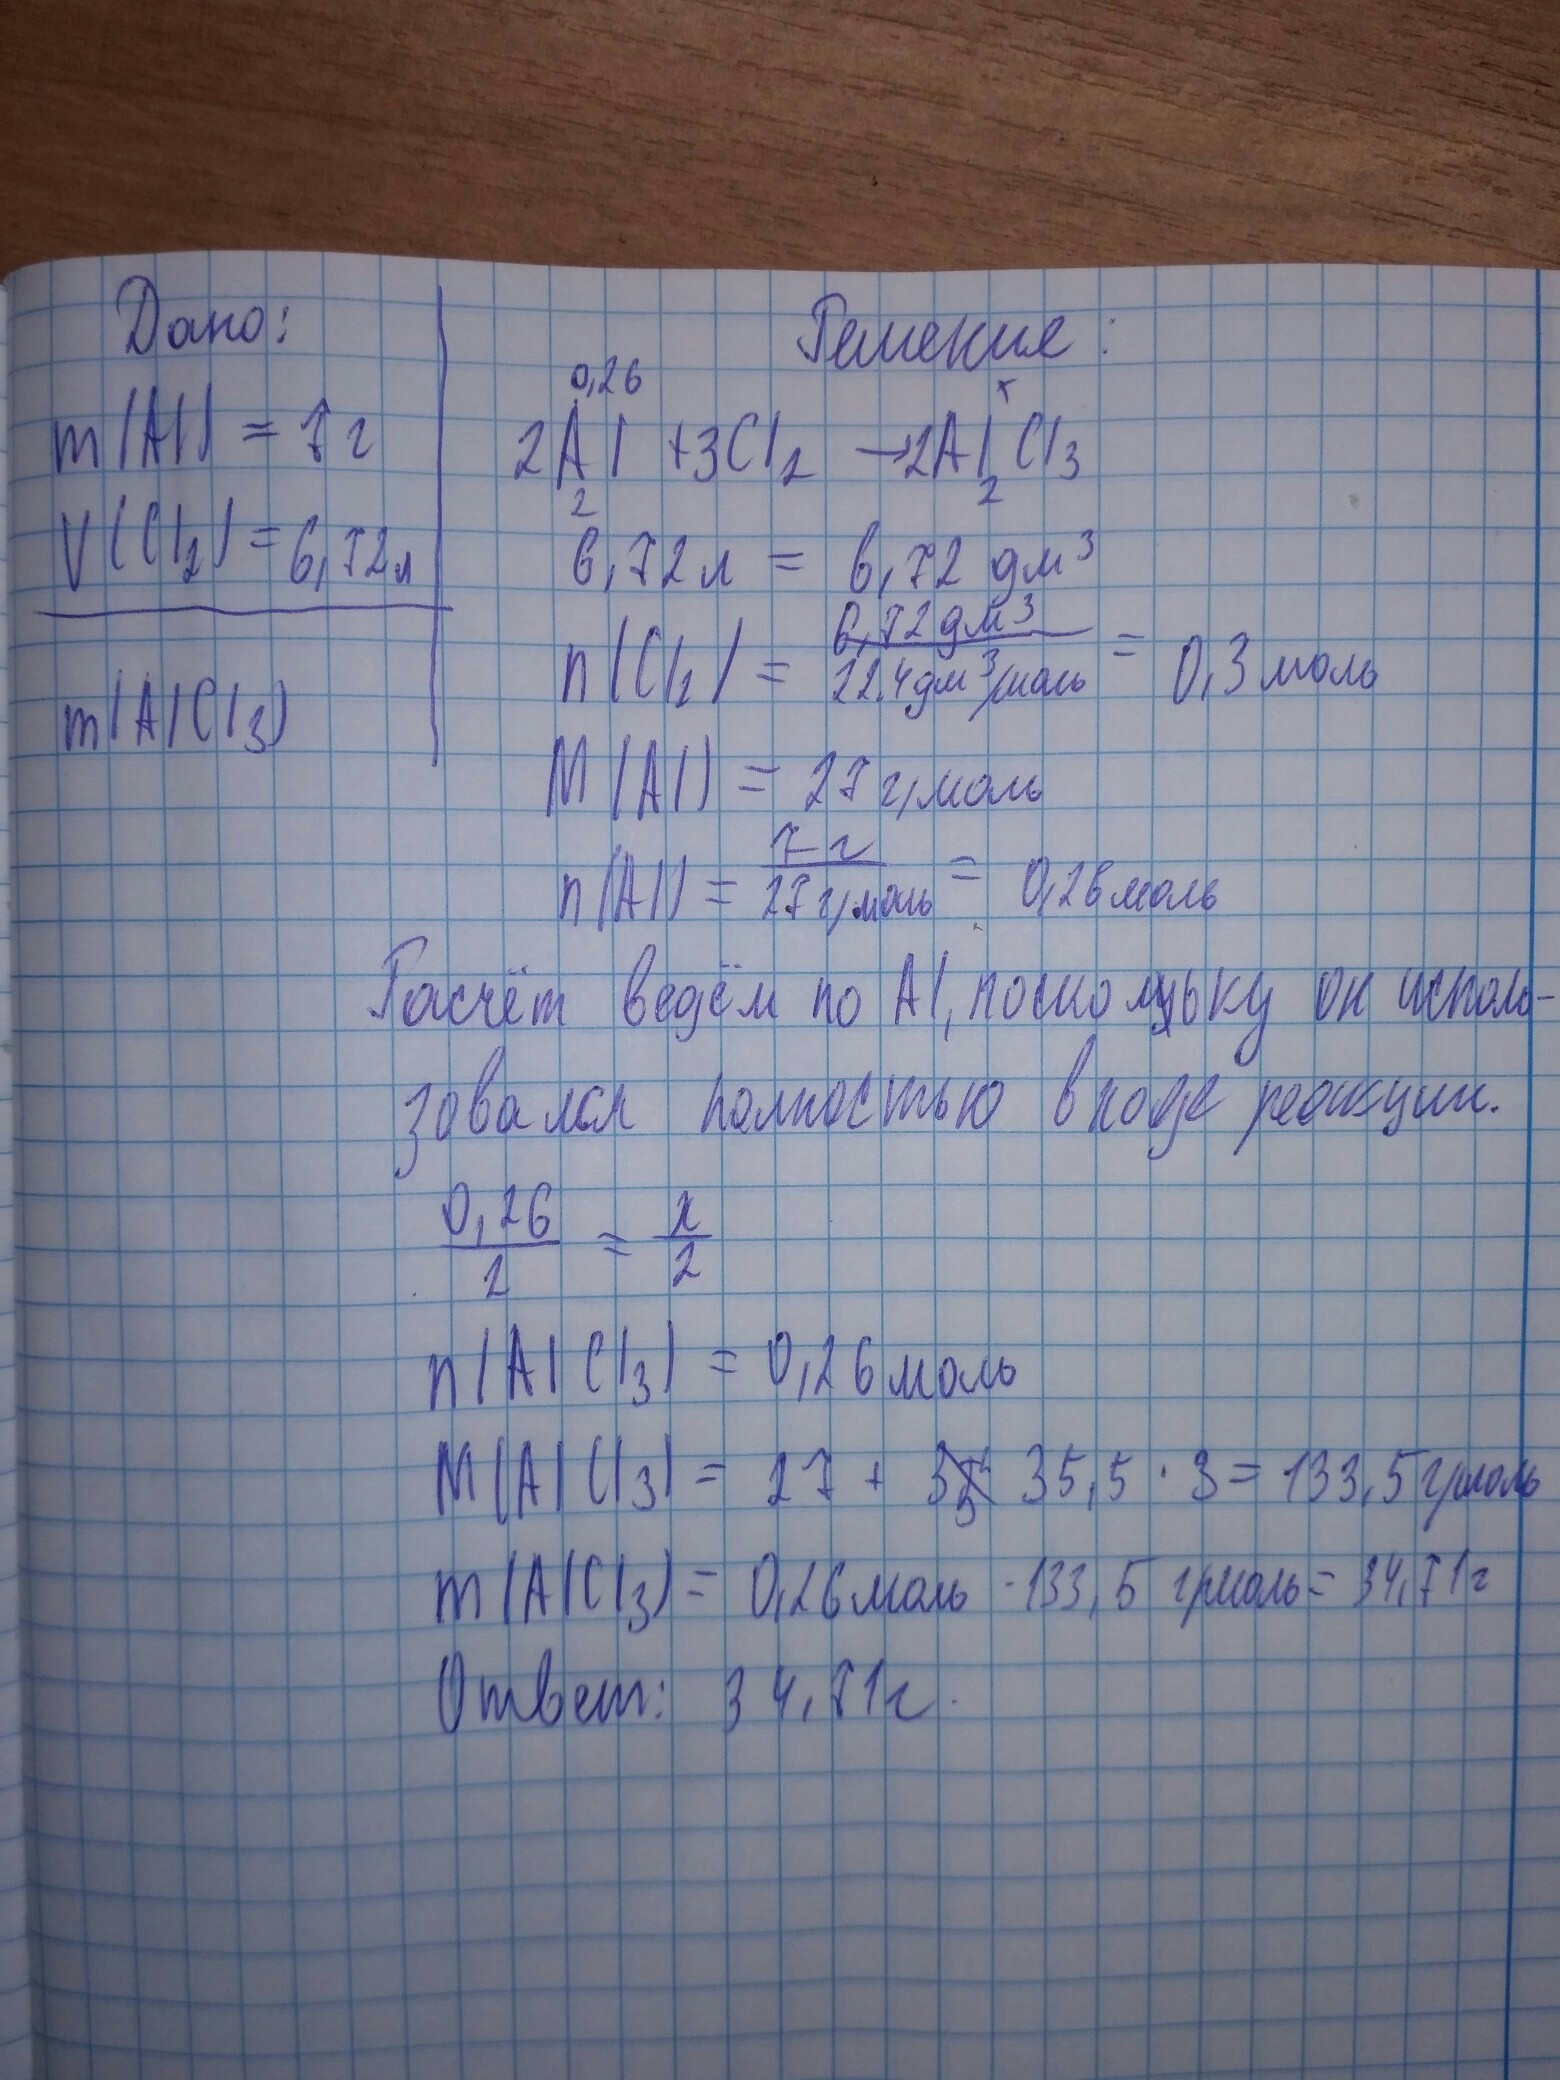 Дано:
m(Al) = 7 г
V(Cl₂) = 6,72 л
m(AlCl₃)
Решение:
0,26 x
2Al + 3Cl₂ → 2AlCl₃
2 2
6,72 л = 6,72 дм³
n(Cl₂) = 6,72 дм³ / 22,4 дм³/моль = 0,3 моль
M(Al) = 27 г/моль
n(Al) = 7 г / 27 г/моль = 0,26 моль
Расчёт ведём по Al, поскольку он исполь-
зовался полностью в ходе реакции.
0,26 / 2 = x / 2
n(AlCl₃) = 0,26 моль
M(AlCl₃) = 27 + 35,5 · 3 = 133,5 г/моль
m(AlCl₃) = 0,26 моль · 133,5 г/моль = 34,71 г
Ответ: 34,71 г.